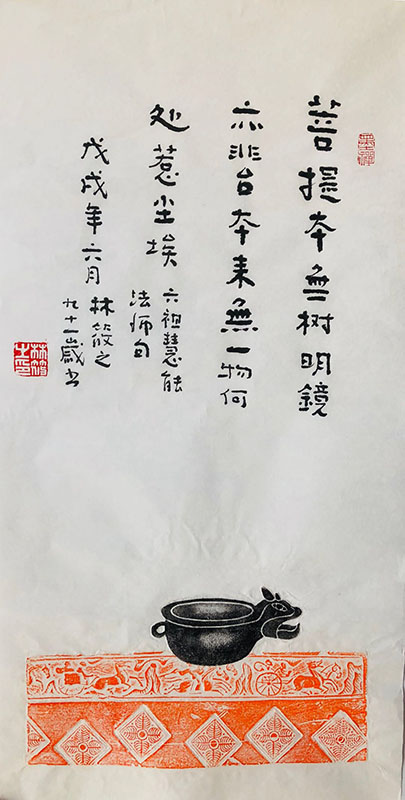 菩提本無树明鏡
亦非台本来無一物何
处惹尘埃
六祖慧能
法师句
戊戌年六月
林筱之
九十一歲书
林筱之印